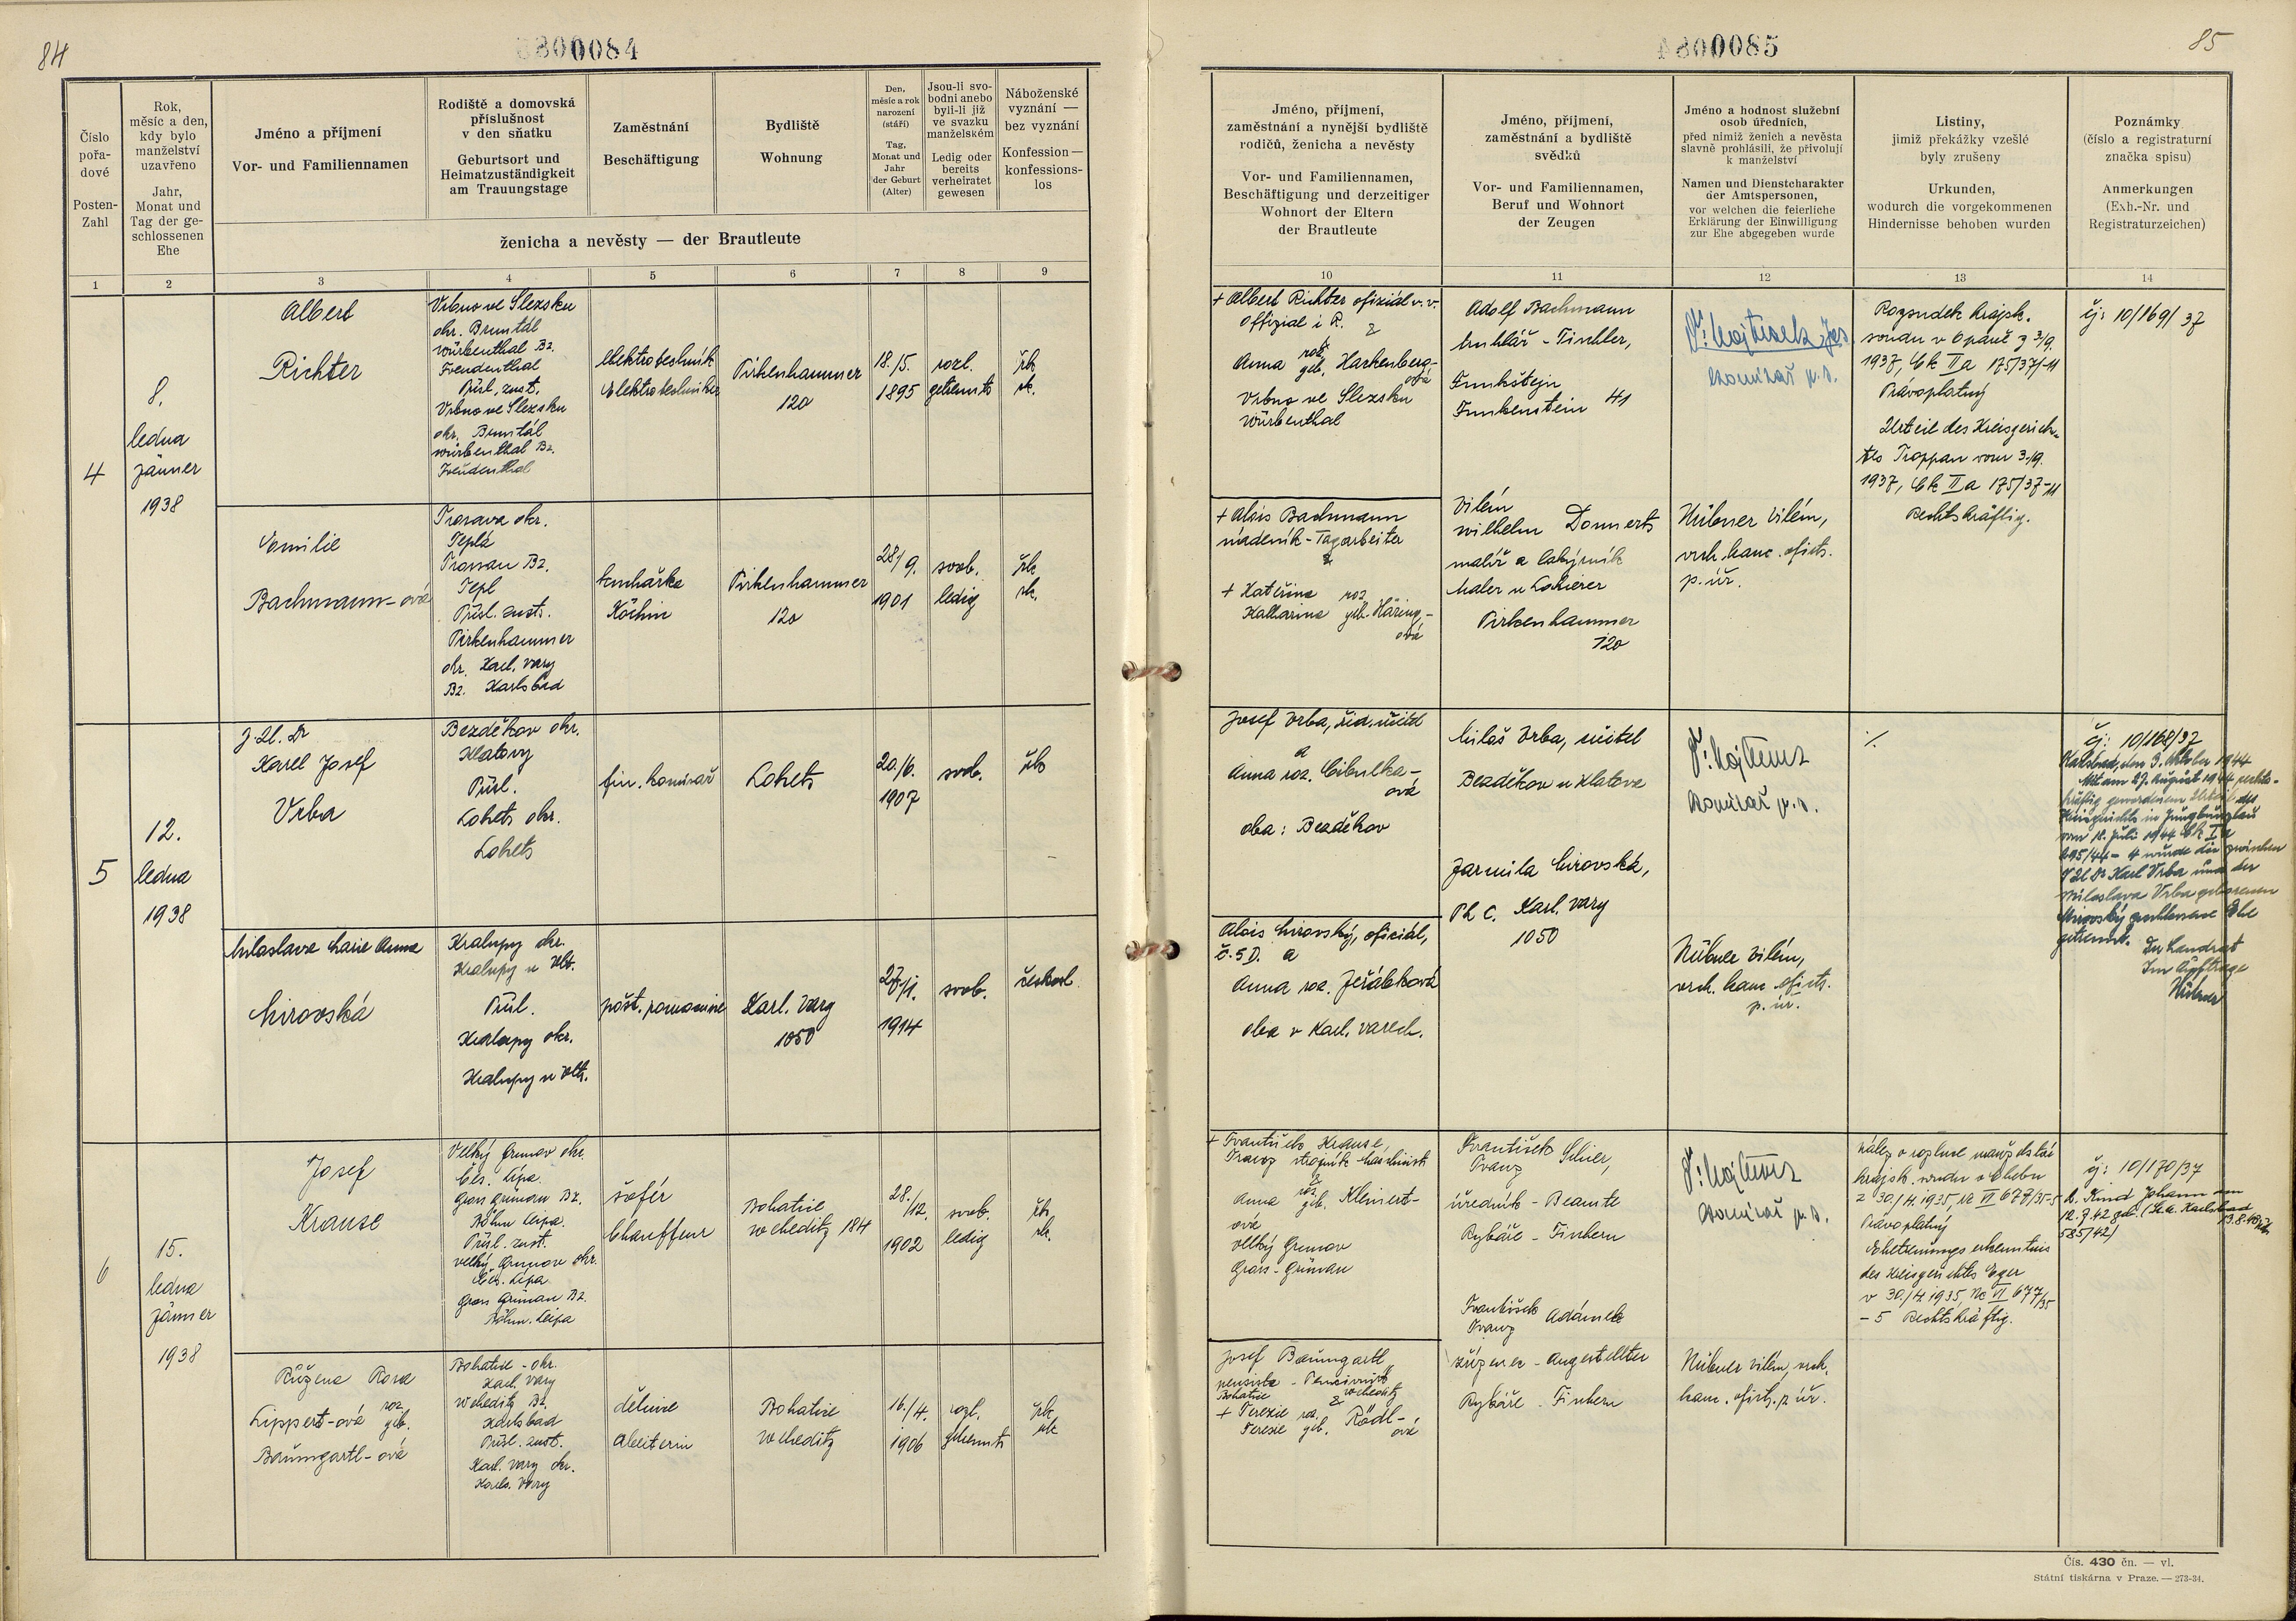 84
0084
Číslo
pořa-
dové
Posten-
Zahl
Rok,
měsíc a den,
kdy bylo
manželství
uzavřeno
Jahr,
Monat und
Tag der ge-
schlossenen
Ehe
Jméno a příjmení
Vor- und Familiennamen
Rodiště a domovská
příslušnost
v den sňatku
Geburtsort und
Heimatzuständigkeit
am Trauungstage
Zaměstnání
Beschäftigung
Bydliště
Wohnung
Den,
měsíc a rok
narození
(stáří)
Tag,
Monat und
Jahr
der Geburt
(Alter)
Jsou-li svo-
bodni anebo
byli-li již
ve svazku
manželském
Ledig oder
bereits
verheiratet
gewesen
Náboženské
vyznání —
bez vyznání
Konfession —
konfessions-
los
ženicha a nevěsty — der Brautleute
1
2
3
4
5
6
7
8
9
4
8.
ledna
Jänner
1938
Albert
Richter
Vrbno ve Slezsku
okr. Bruntál
Würbenthal Bz.
Freudenthal
Přísl. zust.
Vrbno ve Slezsku
okr. Bruntál
Würbenthal Bz.
Freudenthal
elektrotechnik
Elektrotechniker
Pirkenhammer
120
18./5.
1895
rozl.
getrennt
řk.
rk.
Emilie
Bachmann-ová
Prosava okr.
Teplá
Prossau Bz.
Tepl
Přísl. zust.
Pirkenhammer
okr. Karl. Vary
Bz. Karlsbad
kuchařka
Köchin
Pirkenhammer
120
28/9.
1901
svob.
ledig
řk.
rk.
5
12.
ledna
1938
J. U. Dr
Karel Josef
Vrba
Bezděkov okr.
Klatovy
Přísl.
Lokets okr.
Lokets
fin. komisař
Lokets
20./6.
1907
svob.
řk
Miloslava Marie Anna
Mirovská
Kralupy okr.
Kralupy n Vlt.
Přísl.
Kralupy okr.
Kralupy n Vlt.
pošt. pomocnice
Karl. Vary
1050
27/1.
1914
svob.
českosl.
6
15.
ledna
Jänner
1938
Josef
Krause
Velký Grunov okr.
Čes. Lípa.
Gross Grünau Bz.
Böhm Leipa.
Přísl. zust.
Velký Grunov okr.
Čes. Lípa.
Gross Grünau Bz.
Böhm. Leipa
šofér
Chauffeur
Bohatice
Weheditz 184
28./12.
1902
svob.
ledig
řk.
rk.
Růžena Rosa
Lippert-ová roz. geb.
Baumgartl-ová
Bohatice - okr.
Karl. Vary
Weheditz Bz.
Karlsbad
Přísl. zust.
Karl. Vary okr.
Karls. Vary
dělnice
Arbeiterin
Bohatice
Weheditz
16./4.
1906
rozl.
getrennt
řk
rk
85
0085
Jméno, příjmení,
zaměstnání a nynější bydliště
rodičů, ženicha a nevěsty
Vor- und Familiennamen,
Beschäftigung und derzeitiger
Wohnort der Eltern
der Brautleute
Jméno, příjmení,
zaměstnání a bydliště
svědků
Vor- und Familiennamen,
Beruf und Wohnort
der Zeugen
Jméno a hodnost služební
osob úředních,
před nimiž ženich a nevěsta
slavně prohlásili, že přivolují
k manželství
Namen und Dienstcharakter
der Amtspersonen,
vor welchen die feierliche
Erklärung der Einwilligung
zur Ehe abgegeben wurde
Listiny,
jimiž překážky vzešlé
byly zrušeny
Urkunden,
wodurch die vorgekommenen
Hindernisse behoben wurden
Poznámky
(číslo a registraturní
značka spisu)
Anmerkungen
(Exh.-Nr. und
Registraturzeichen)
10
11
12
13
14
+ Albert Richter ofiziál v. v.
Offizial i R.
Anna roz. geb. Harkenberg-
ová
Vrbno ve Slezsku
Würbenthal
Adolf Bachmann
truhlář - Tischler,
Funkštejn
Funkenstein 41
komisař p. s.
Rozsudek krajsk.
soudu v Opavě z 3/9.
1937, Ck II a 175/37-11
Právoplatný
Urteil des Kreisgerich-
tes Troppau vom 3./9.
1937, Ck II a 175/37-11
Rechtskräftig.
čj: 10/169/37
+ Alois Bachmann
nádeník - Tagarbeiter
+ Kateřina roz
Katharina geb. Häring-
ová
Vilém
Wilhelm Donnerts
malíř a lakýrník
Maler u Lakierer
Pirkenhammer
120
Hübner Vilém,
vrch. kanc. ofics.
p. úř.
Josef Vrba, říd. učitel
a
Anna roz. Cibulka-
ová
oba: Bezděkov
Miloš Vrba, učitel
Bezděkov u Klatova
Jarmila Mirovská,
Ph C. Karl. Vary
1050
komisař p. s.
./.
čj: 10/168/37
Karlsbad, den 9. Oktober 1944
Mit am 27. August 1944 rechts-
kräftig gewordenem Urteil des
Kreisgerichts in Jungbunzlau
vom 18. Juli 1944 Ck I a
295/44 - 4 wurde die zwischen
J U Dr Karl Vrba und der
Miloslava Vrba geborenen
Mirovský geschlossene Ehe
getrennt. Der Landrat
Im Auftrage
Hübner
Alois Mirovský, oficiál,
č. S D. a
Anna roz. Jeřábková
oba v Karl. Varech.
Hübner Vilém,
vrch. kanc. ofics.
p. úř.
+ František Krause,
Franz strojník Maschinist
Anna roz. geb. Kleinert-
ová
Velký Grunov
Gross-Grünau
František
Franz
úředník - Beamte
Rybáře - Fischern
František
Franz Adámek
zřízenec - Angestellter
Rybáře - Fischern
komisař p. s.
Nález o rozluce manželství
krajsk. soudu v Chebu
z 30/4. 1935, Nc VI 677/35-5
Právoplatný
Ehetrennungserkenntnis
des Kreisgerichts Eger
v 30./4. 1935 Nc VI 677/35
- 5 Rechtskräftig.
čj: 10/170/37
Kind Johann am
12.7.42 geb. (St. A. Karlsbad
585/42)
Josef Baumgartl
pensista - Pensionist
Bohatice Weheditz
+ Terezie roz.
Teresie geb. Rödl-
ová
Hübner Vilém, vrch.
kanc. ofics. p úř.
Čís. 430 čn. — vl.
Státní tiskárna v Praze. — 273-34.